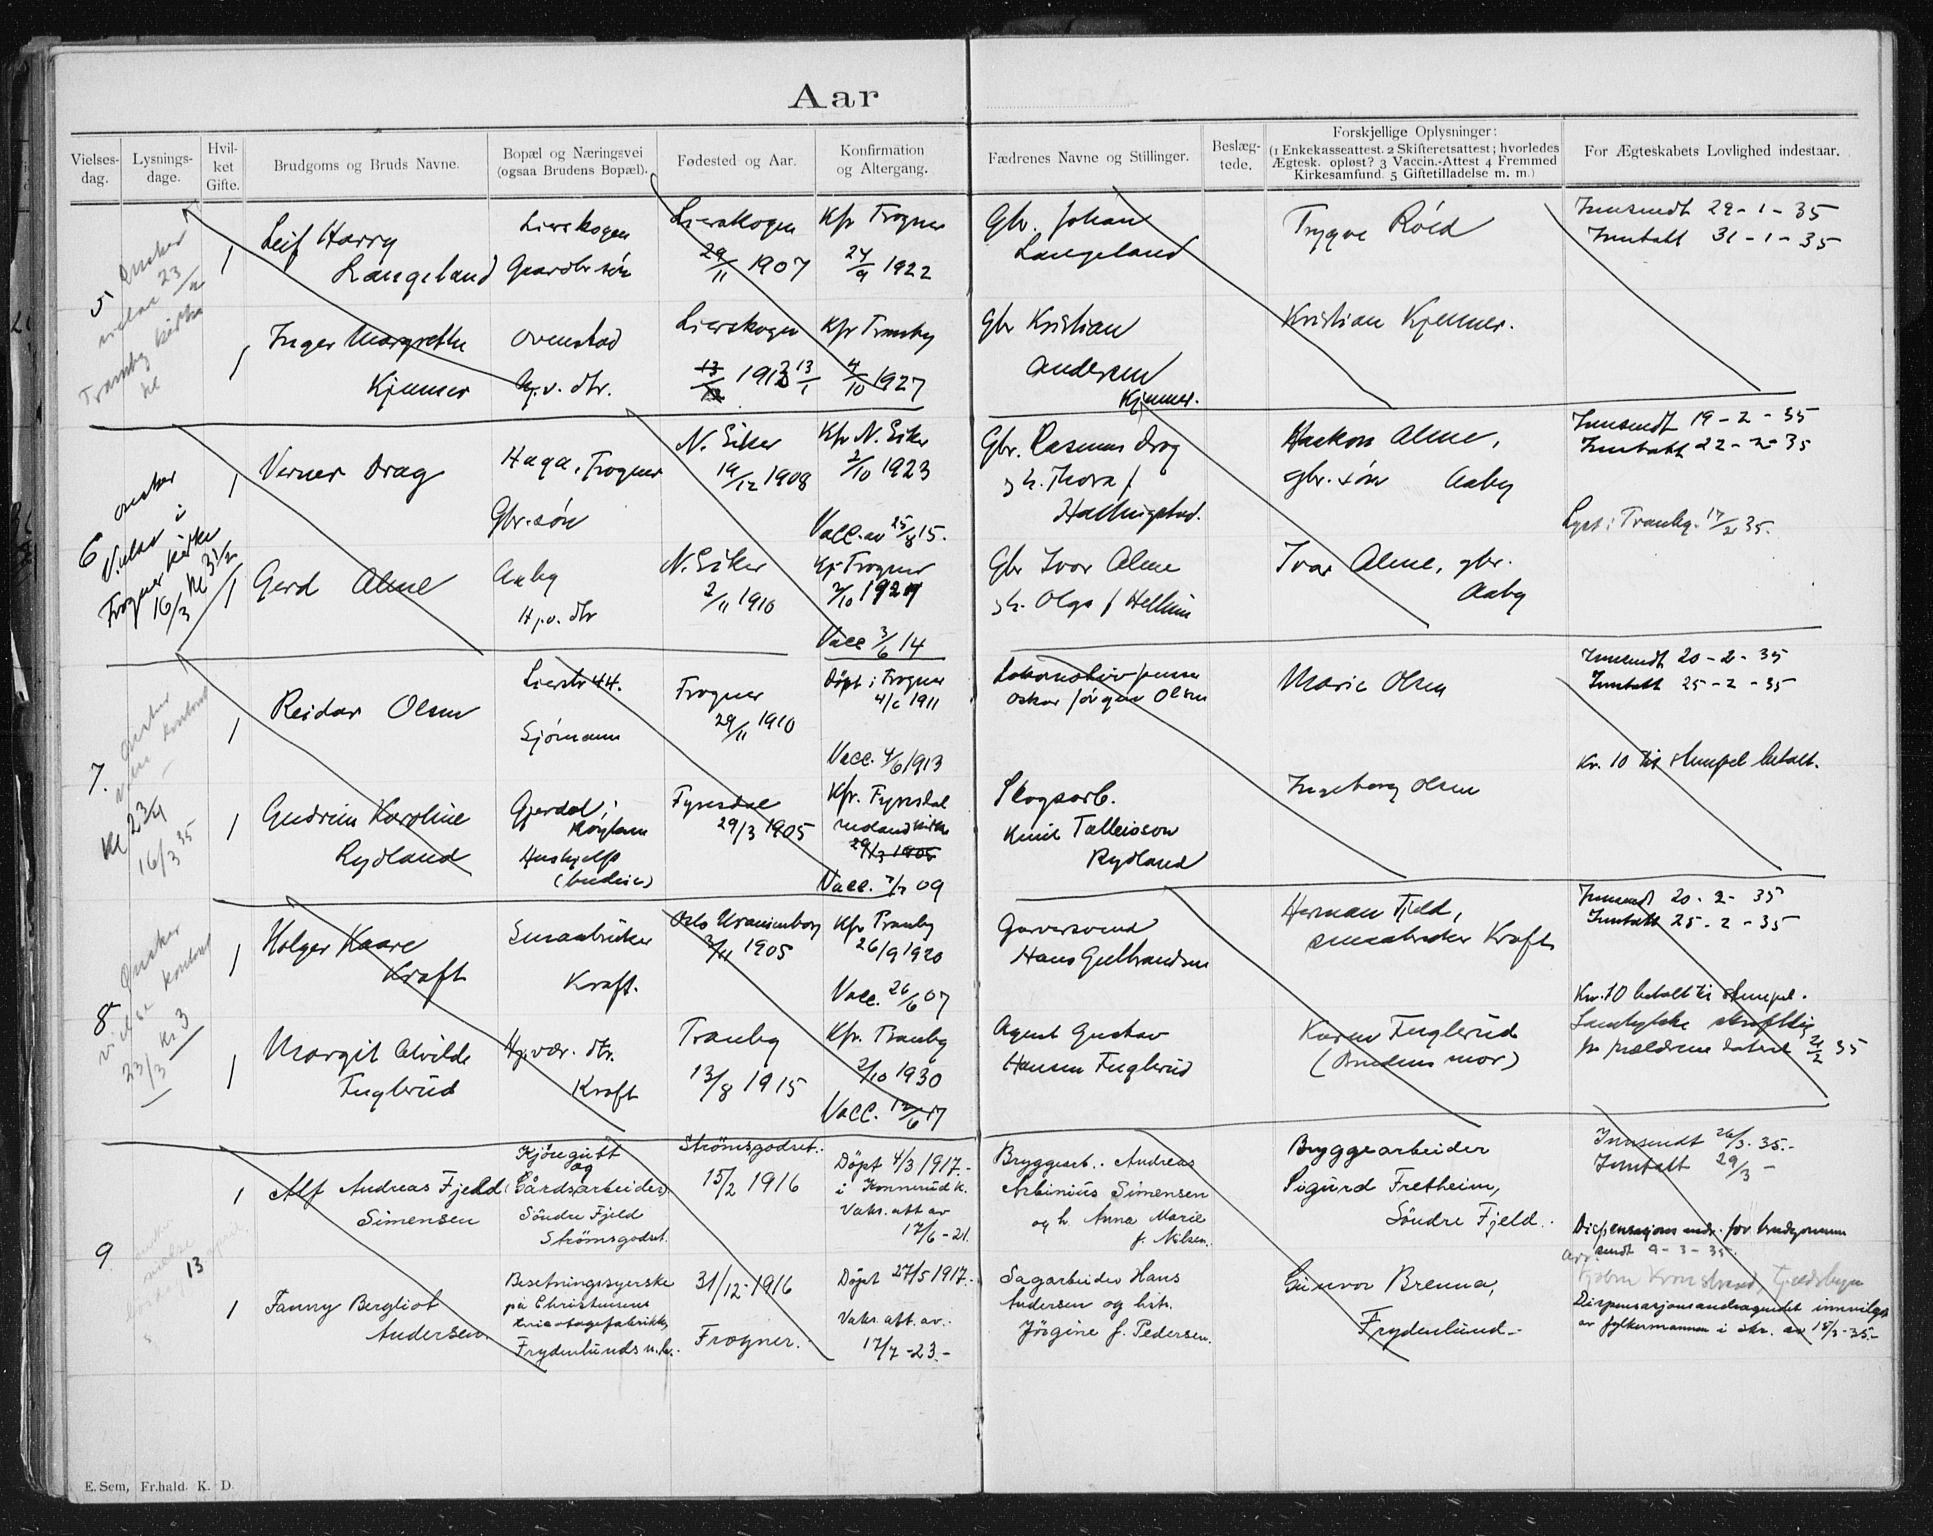 Aar
Vielses-dag.
Lysnings-dage.
Hvil-ket Gifte.
Brudgoms og Bruds Navne.
Bopæl og Næringsvei
(ogsaa Brudens Bopæl).
Fødested og Aar.
Konfirmation
og Altergang.
Fædrenes Navne og Stillinger.
Beslæg-tede.
Forskjellige Oplysninger:
(1 Enkekasseattest. 2 Skifteretsattest; hvorledes
Ægtesk. opløst? 3 Vaccin.-Attest 4 Fremmed
Kirkesamfund. 5 Giftetilladelse m. m.)
For Ægteskabets Lovlighed indestaar.
5
Ønsker
vielse 23/2
Tranby kirke
kl
1
Leif Harry
Langeland
Lierskogen
Gaardbr. søn
Lierskogen
29/11 1907
Kfr Frogner
24/9 1922
Gbr. Johan
Langeland
Trygve Röed
Innsendt 29-1-35
Inntatt 31-1-35
1
Inger Margrethe
Kjenner
Ovenstad
Hj.v. dtr.
Lierskogen
1913 13/1
Kfr Tranby
4/10 1927
Gbr Kristian
Andersen
Kjenner.
Kristian Kjenner.
6
ønsker
Vielse i
Frogner kirke
16/3 kl 3 1/2
1
Verner Drag
Haga, Frogner
Gbr. søn
N. Eiker
19/12 1908
Kfr N. Eiker
2/10 1923
Vacc. av 25/8 15.
Gbr. Rasmus Drog
g h. Thora f
Hallingstad.
Haakon Alme,
gbr. søn Aaby
Innsendt 19-2-35
Inntatt 22-2-35
Lyst i Tranby. 17/2 35.
1
Gerd Alme
Aaby
Hj.v. dtr
N. Eiker
2/11 1910
Kfr Frogner
2/10 1927
Vacc 3/6 14
Gbr Ivar Alme
g h. Olga f Hellum
Ivar Alme, gbr.
Aaby
7.
Ønsker
kontoret
kl 23/4
16/3 35
1
Reidar Olsen
Lierstr 44.
Sjømann
Frogner
29/11 1910
Døpt i Frogner
4/6 1911
Vacc. 4/6 1913
Oskar Jörgen Olsen
Marie Olsen
Innsendt 20-2-35
Inntatt 25-2-35
Kr. 10 til stempel betalt.
1
Gudrun Karoline
Rydland
Gjerdal,
Røyken
Hushjelp
(budeie)
Fyresdal
29/3 1905
Kfr. Fyresdal
Moland kirke
29/3 1905
Vacc. 7/7 09
Skogsarb.
Knut Talleivson
Rydland
Ingeborg Olsen
8
Ønsker
vielse kontoret
23/3 kl 3
1
Holger Kaare
Kraft
Smaabruker
Kraft.
Oslo Uranienborg
2/11 1905
Kfr Tranby
26/9 1920
Vacc. 26/6 07
Garversvend
Hans Gulbrandsen
Herman Fjeld,
smaabruker Kraft
Innsendt 20-2-35
Inntatt 25-2-35
Kr. 10 betalt til stempel.
Samtykke skriftlig
fr foreldrene datert 21/2 35
1
Margit Alvilde
Fuglerud
Hj.vær. dtr.
Kraft
Tranby
13/8 1915
Kfr. Tranby
2/10 1930
Vacc. 12/6 17
Agent Gustav
Hansen Fuglerud
Karen Fuglerud
(Brudens mor)
9
13
1
Alf Andreas Fjeld
Simensen
Kjöregutt
og
(Gårdsarbeider)
Söndre Fjeld
Strömsgodset.
Strömsgodset.
15/2 1916
Döpt 4/3 1917.-
i Konnerud k.
Vaks. att av
17/6-21.
Bryggearb. Andreas
Arbinius Simensen
og h. Anna Marie
f. Nilsen.
Bryggearbeider
Sigurd Fretheim,
Söndre Fjeld.
Innsendt 26/3.35.-
Inntatt 29/3 -
Dispensasjons andr. for brudgommen
sendt 9-3-35.
1
Fanny Bergliot
Andersen
Besetningssyerske
på Christensens
tricotagefabrikk,
Frydenlunds n.h.
31/12-1916
Frogner.
Döpt 27/5 1917.-
Vaks. att. av.
17/7-23.-
Sagarbeider Hans
Andersen og hstr.
Jörgine f. Pedersen.
Gunvor Brenna,
Frydenlund.-
Dispensasjonsandragendet innvilget
av fylkesmannen i skr. av 15/3-35.-
E. Sem, Fr.hald. K. D.